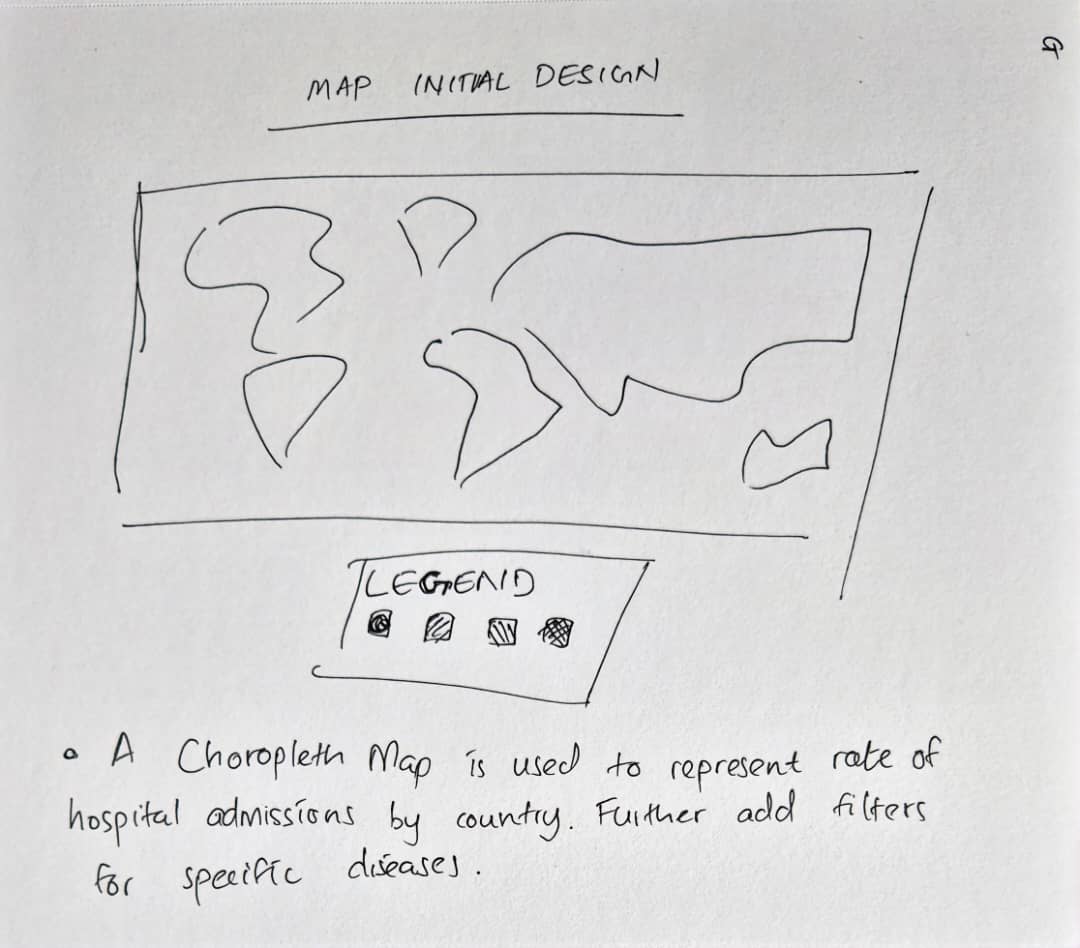 G
MAP INITIAL DESIGN
LEGEND
• A Choropleth Map is used to represent rate of
hospital admissions by country. Further add filters
for specific diseases.